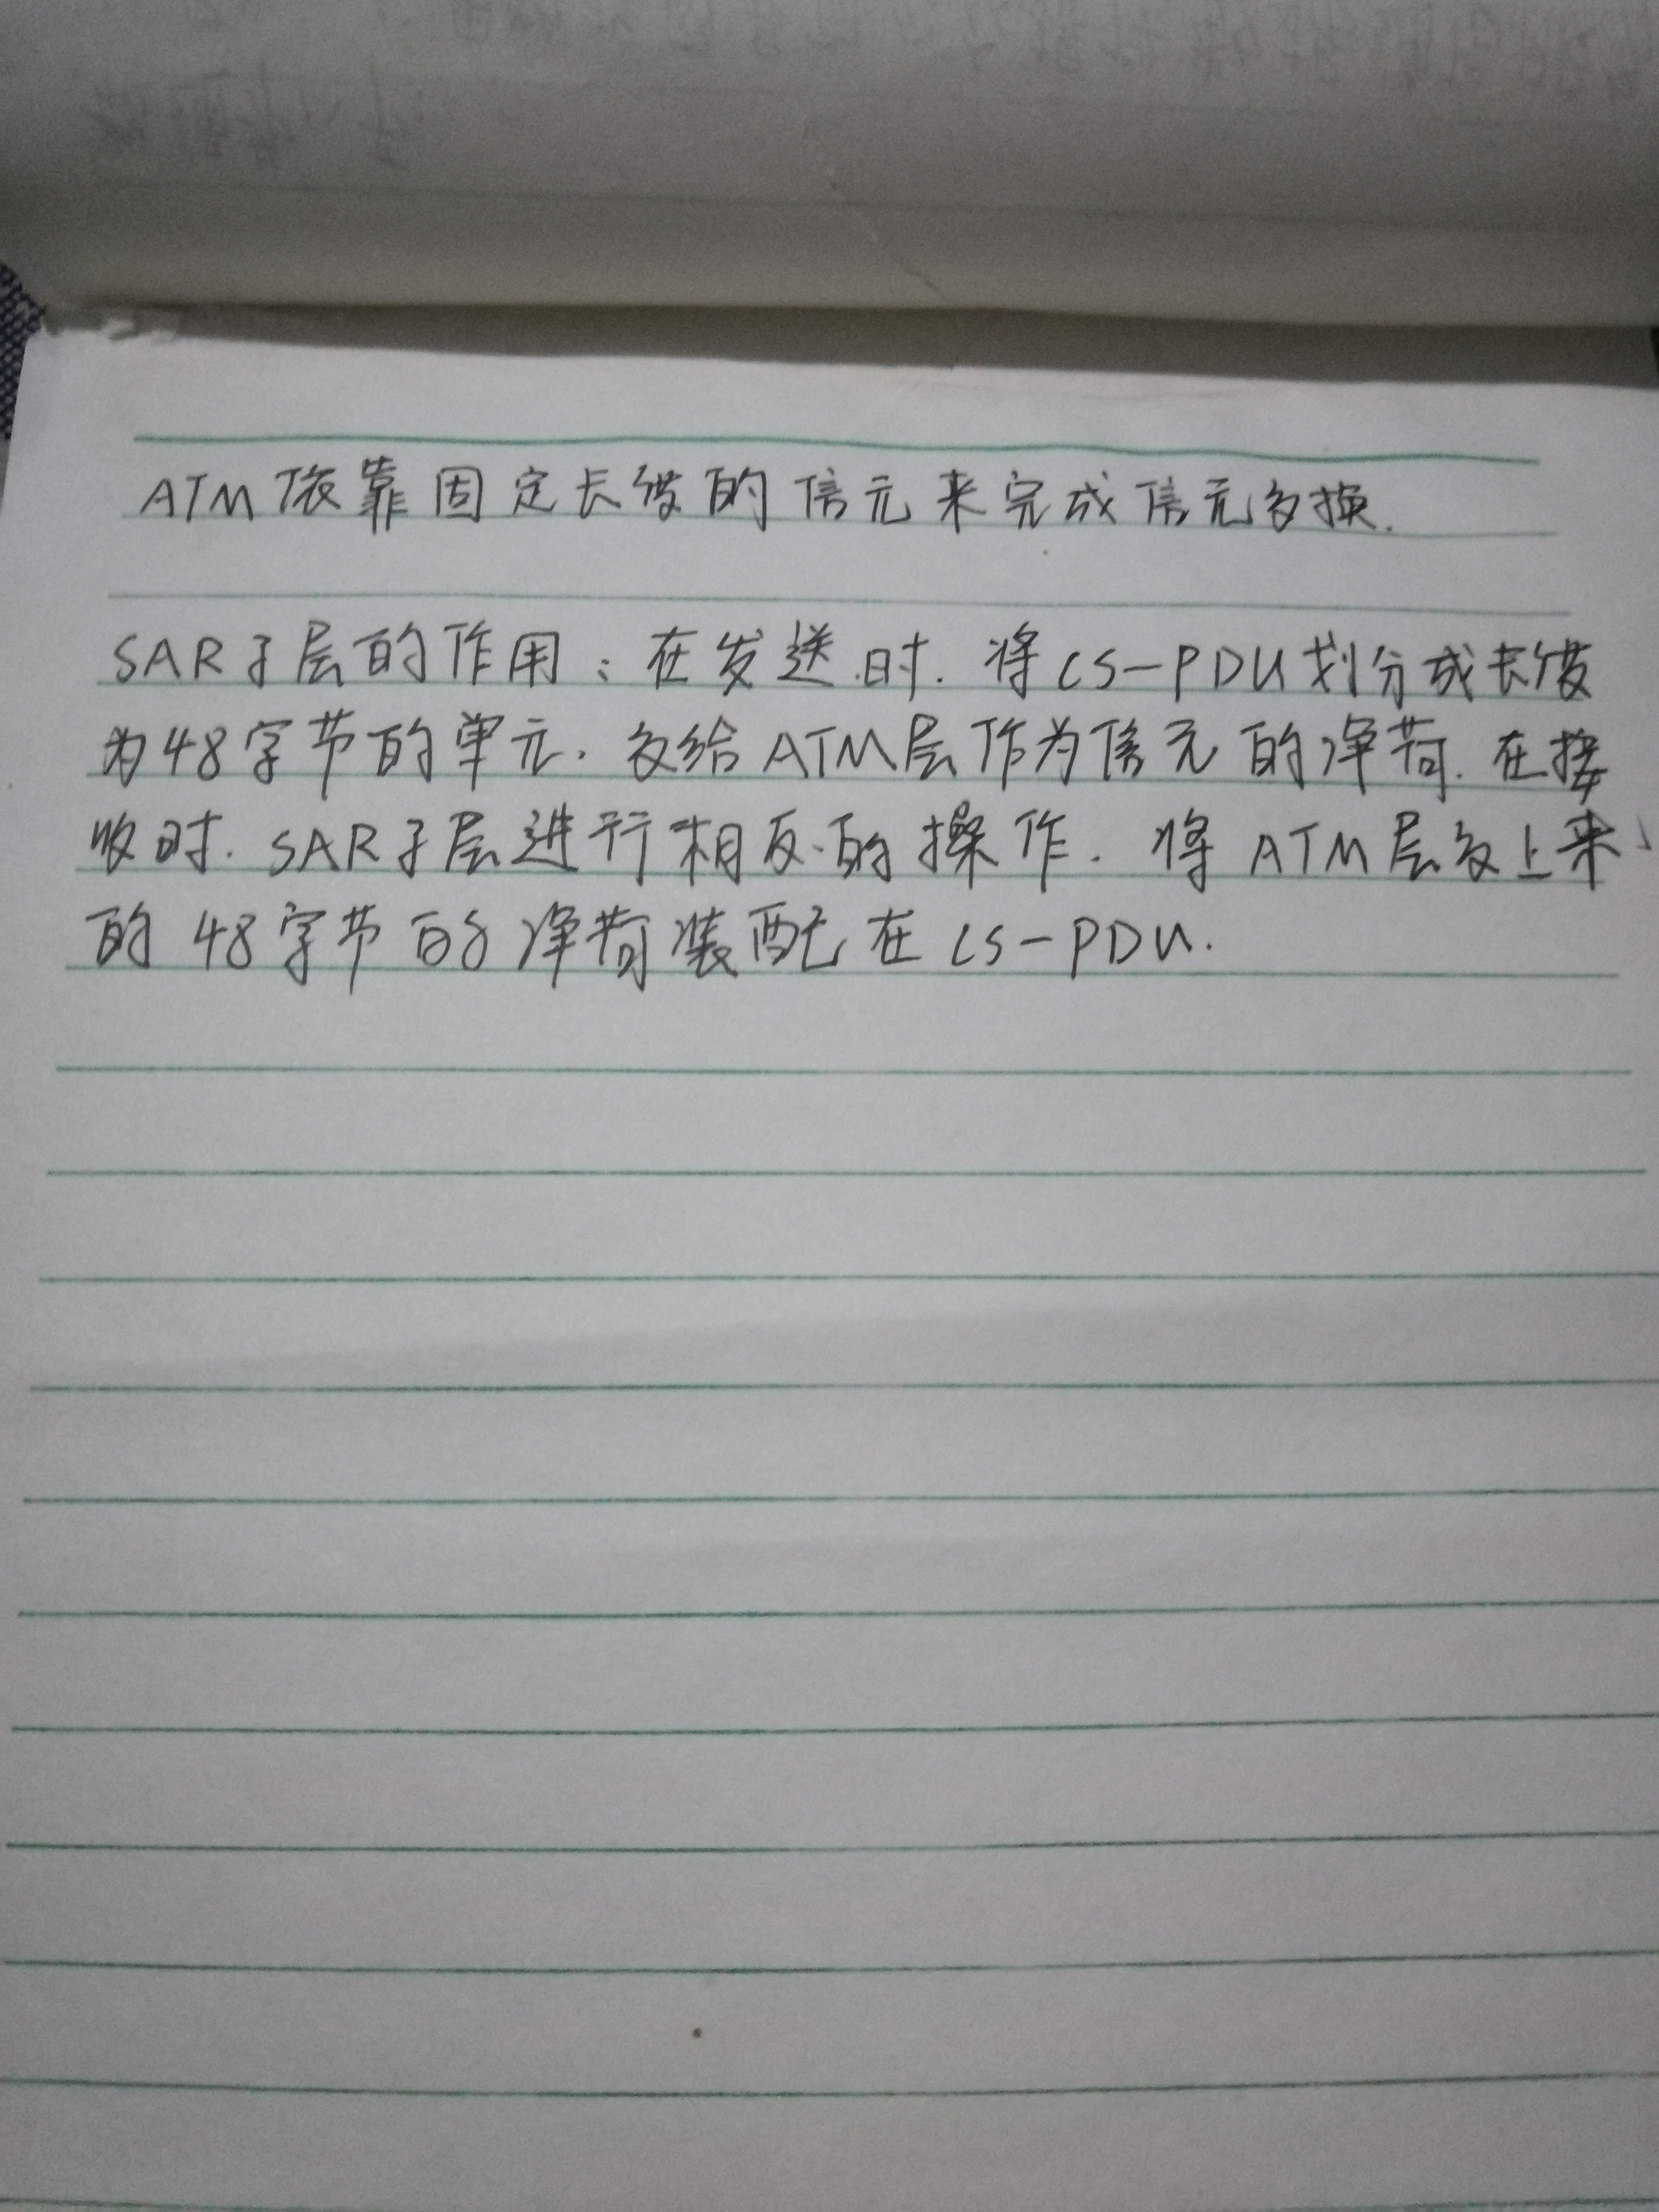 ATM依靠固定长度的信元来完成信元交换.
SAR子层的作用:在发送时.将CS-PDU划分成长度
为48字节的单元.交给ATM层作为信元的净荷.在接
收时.SAR子层进行相反的操作.将ATM层交上来
的48字节的净荷装配在CS-PDU.